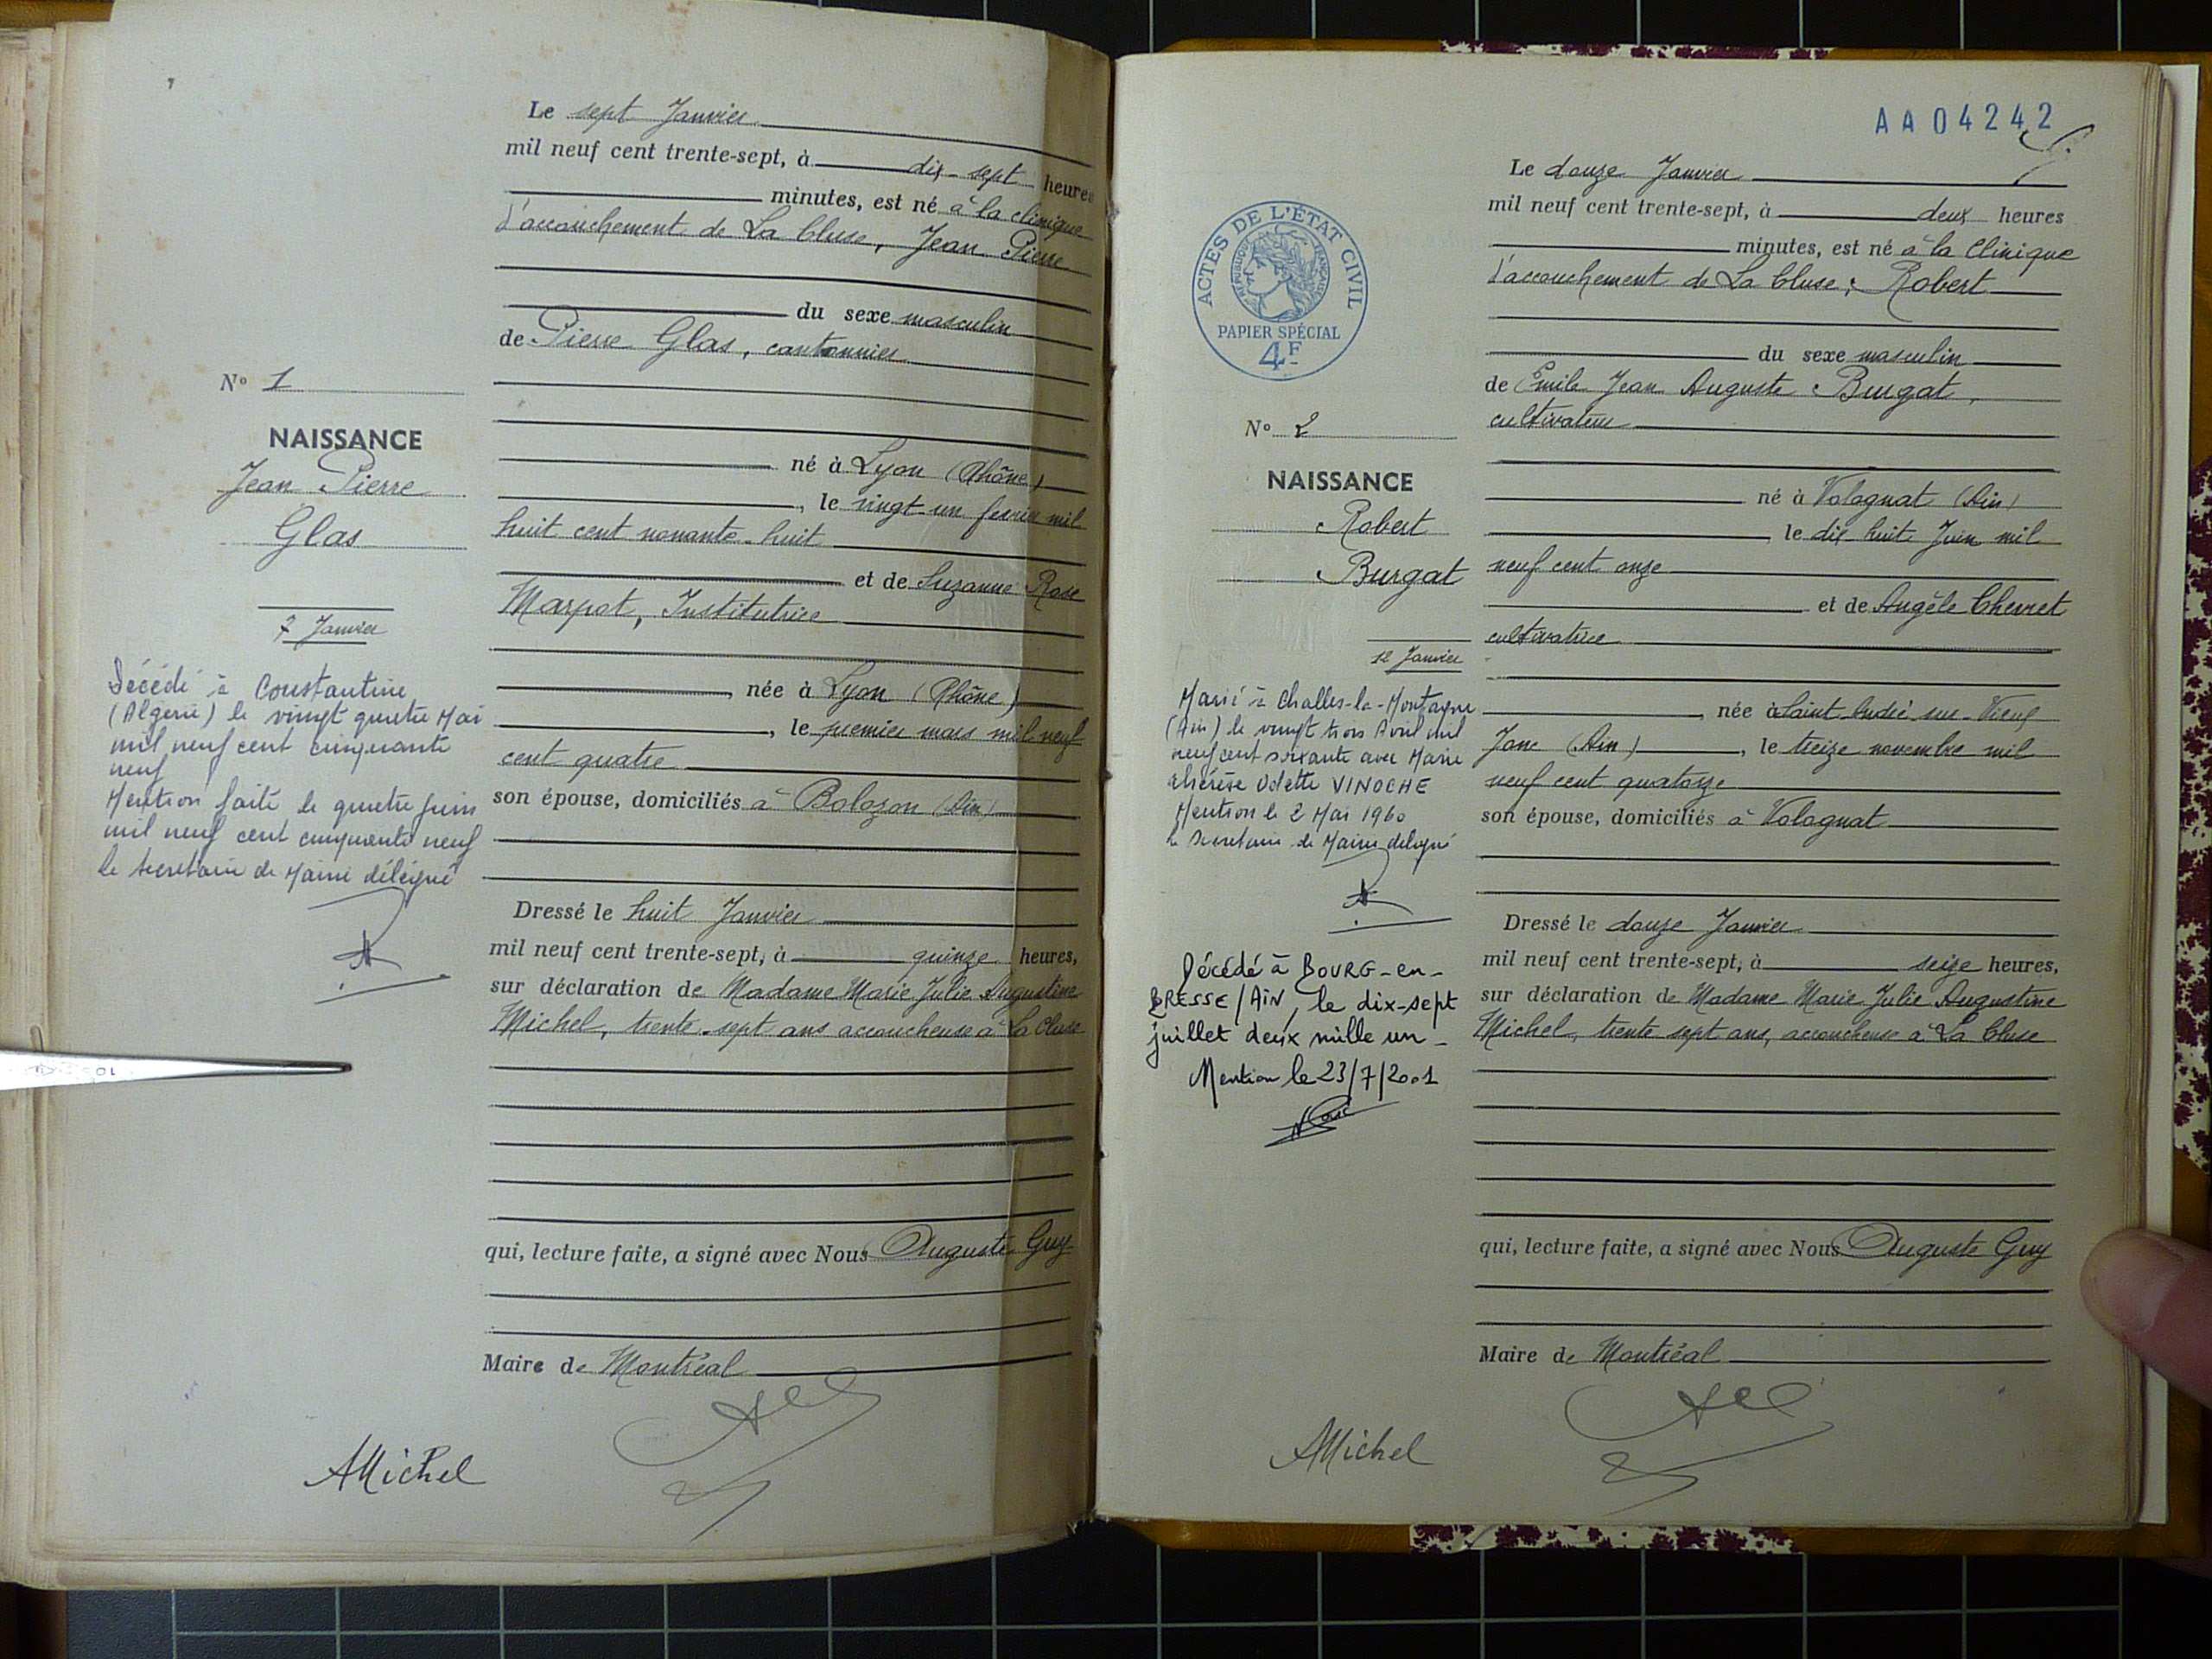 Le sept Janvier
mil neuf cent trente-sept, à dix-sept heures
minutes, est né à la clinique
d'accouchement de La Cluse, Jean Pierre
du sexe masculin
de Pierre Glas, cantonnier
né à Lyon (Rhône)
, le vingt-un fevrier mil
huit cent nonante-huit
et de Suzanne Rose
Marpot, Institutrice
née à Lyon (Rhône)
, le premier mars mil neuf
cent quatre
son épouse, domiciliés à Bolozon (Ain)
Dressé le huit Janvier
mil neuf cent trente-sept, à quinze heures,
sur déclaration de Madame Marie Julie Augustine
Michel, trente-sept ans accoucheuse à La Cluse
qui, lecture faite, a signé avec Nous Auguste Guy
Maire de Montréal
AMichel
No 1
NAISSANCE
Jean Pierre
Glas
7 Janvier
Décédé à Constantine
(Algerie) le vingt quatre Mai
mil neuf cent cinquante
neuf
Mention faite le quatre juin
mil neuf cent cinquante neuf
le Secretaire de Mairie délégué
AA04242
ACTES DE L'ÉTAT CIVIL
RÉPUBLIQUE FRANÇAISE
PAPIER SPÉCIAL
4F
Le douze Janvier
mil neuf cent trente-sept, à deux heures
minutes, est né à la Clinique
d'accouchement de La Cluse, Robert
du sexe masculin
de Emile Jean Auguste Burgat,
cultivateur
né à Volognat (Ain)
le dix-huit Juin mil
neuf cent onze
et de Angèle Chevret
cultivatrice
née à Saint-André-sur-Vieux
Jonc (Ain), le treize novembre mil
neuf cent quatorze
son épouse, domiciliés à Volognat
Dressé le douze Janvier
mil neuf cent trente-sept, à seize heures,
sur déclaration de Madame Marie Julie Augustine
Michel, trente sept ans, accoucheuse à La Cluse
qui, lecture faite, a signé avec Nous Auguste Guy
Maire de Montréal
AMichel
No 2
NAISSANCE
Robert
Burgat
12 Janvier
Marié à Challes-la-Montagne
(Ain) le vingt trois Avril mil
neuf cent soixante avec Marie
Thérèse Odette VINOCHE
Mention le 2 Mai 1960
le Secretaire de Mairie délégué
Décédé à BOURG-en-
BRESSE/AIN, le dix-sept
juillet deux mille un_
Mention le 23/7/2001